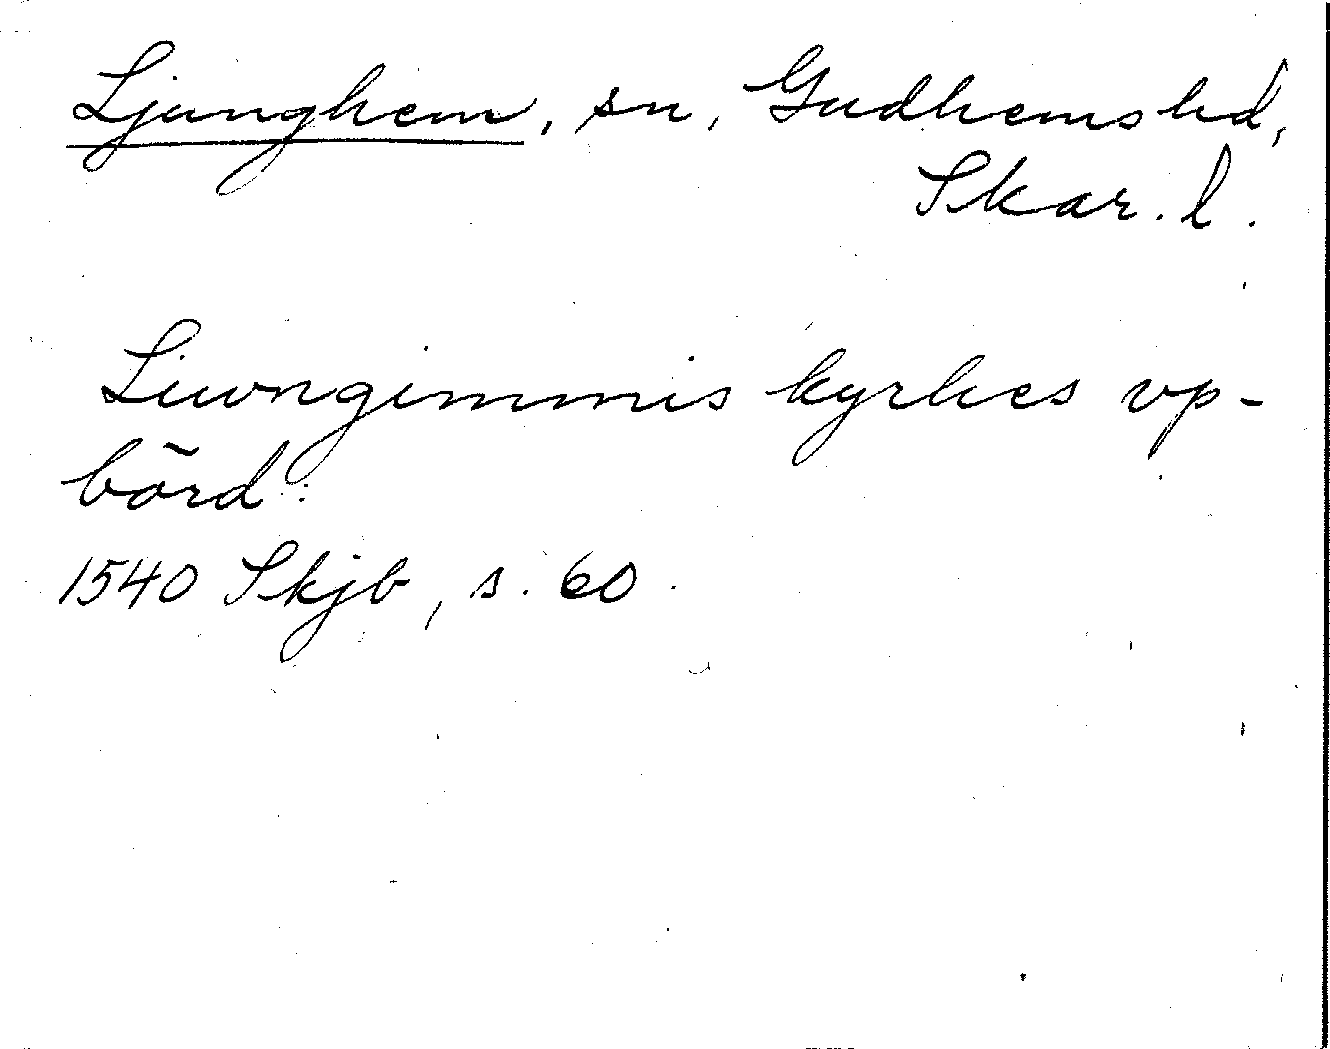 Ljunghem, sn, Gudhems hd,
Skar. l.
Liwngimmis kyrkes vp-
börd:
1540 Skjb, s. 60.